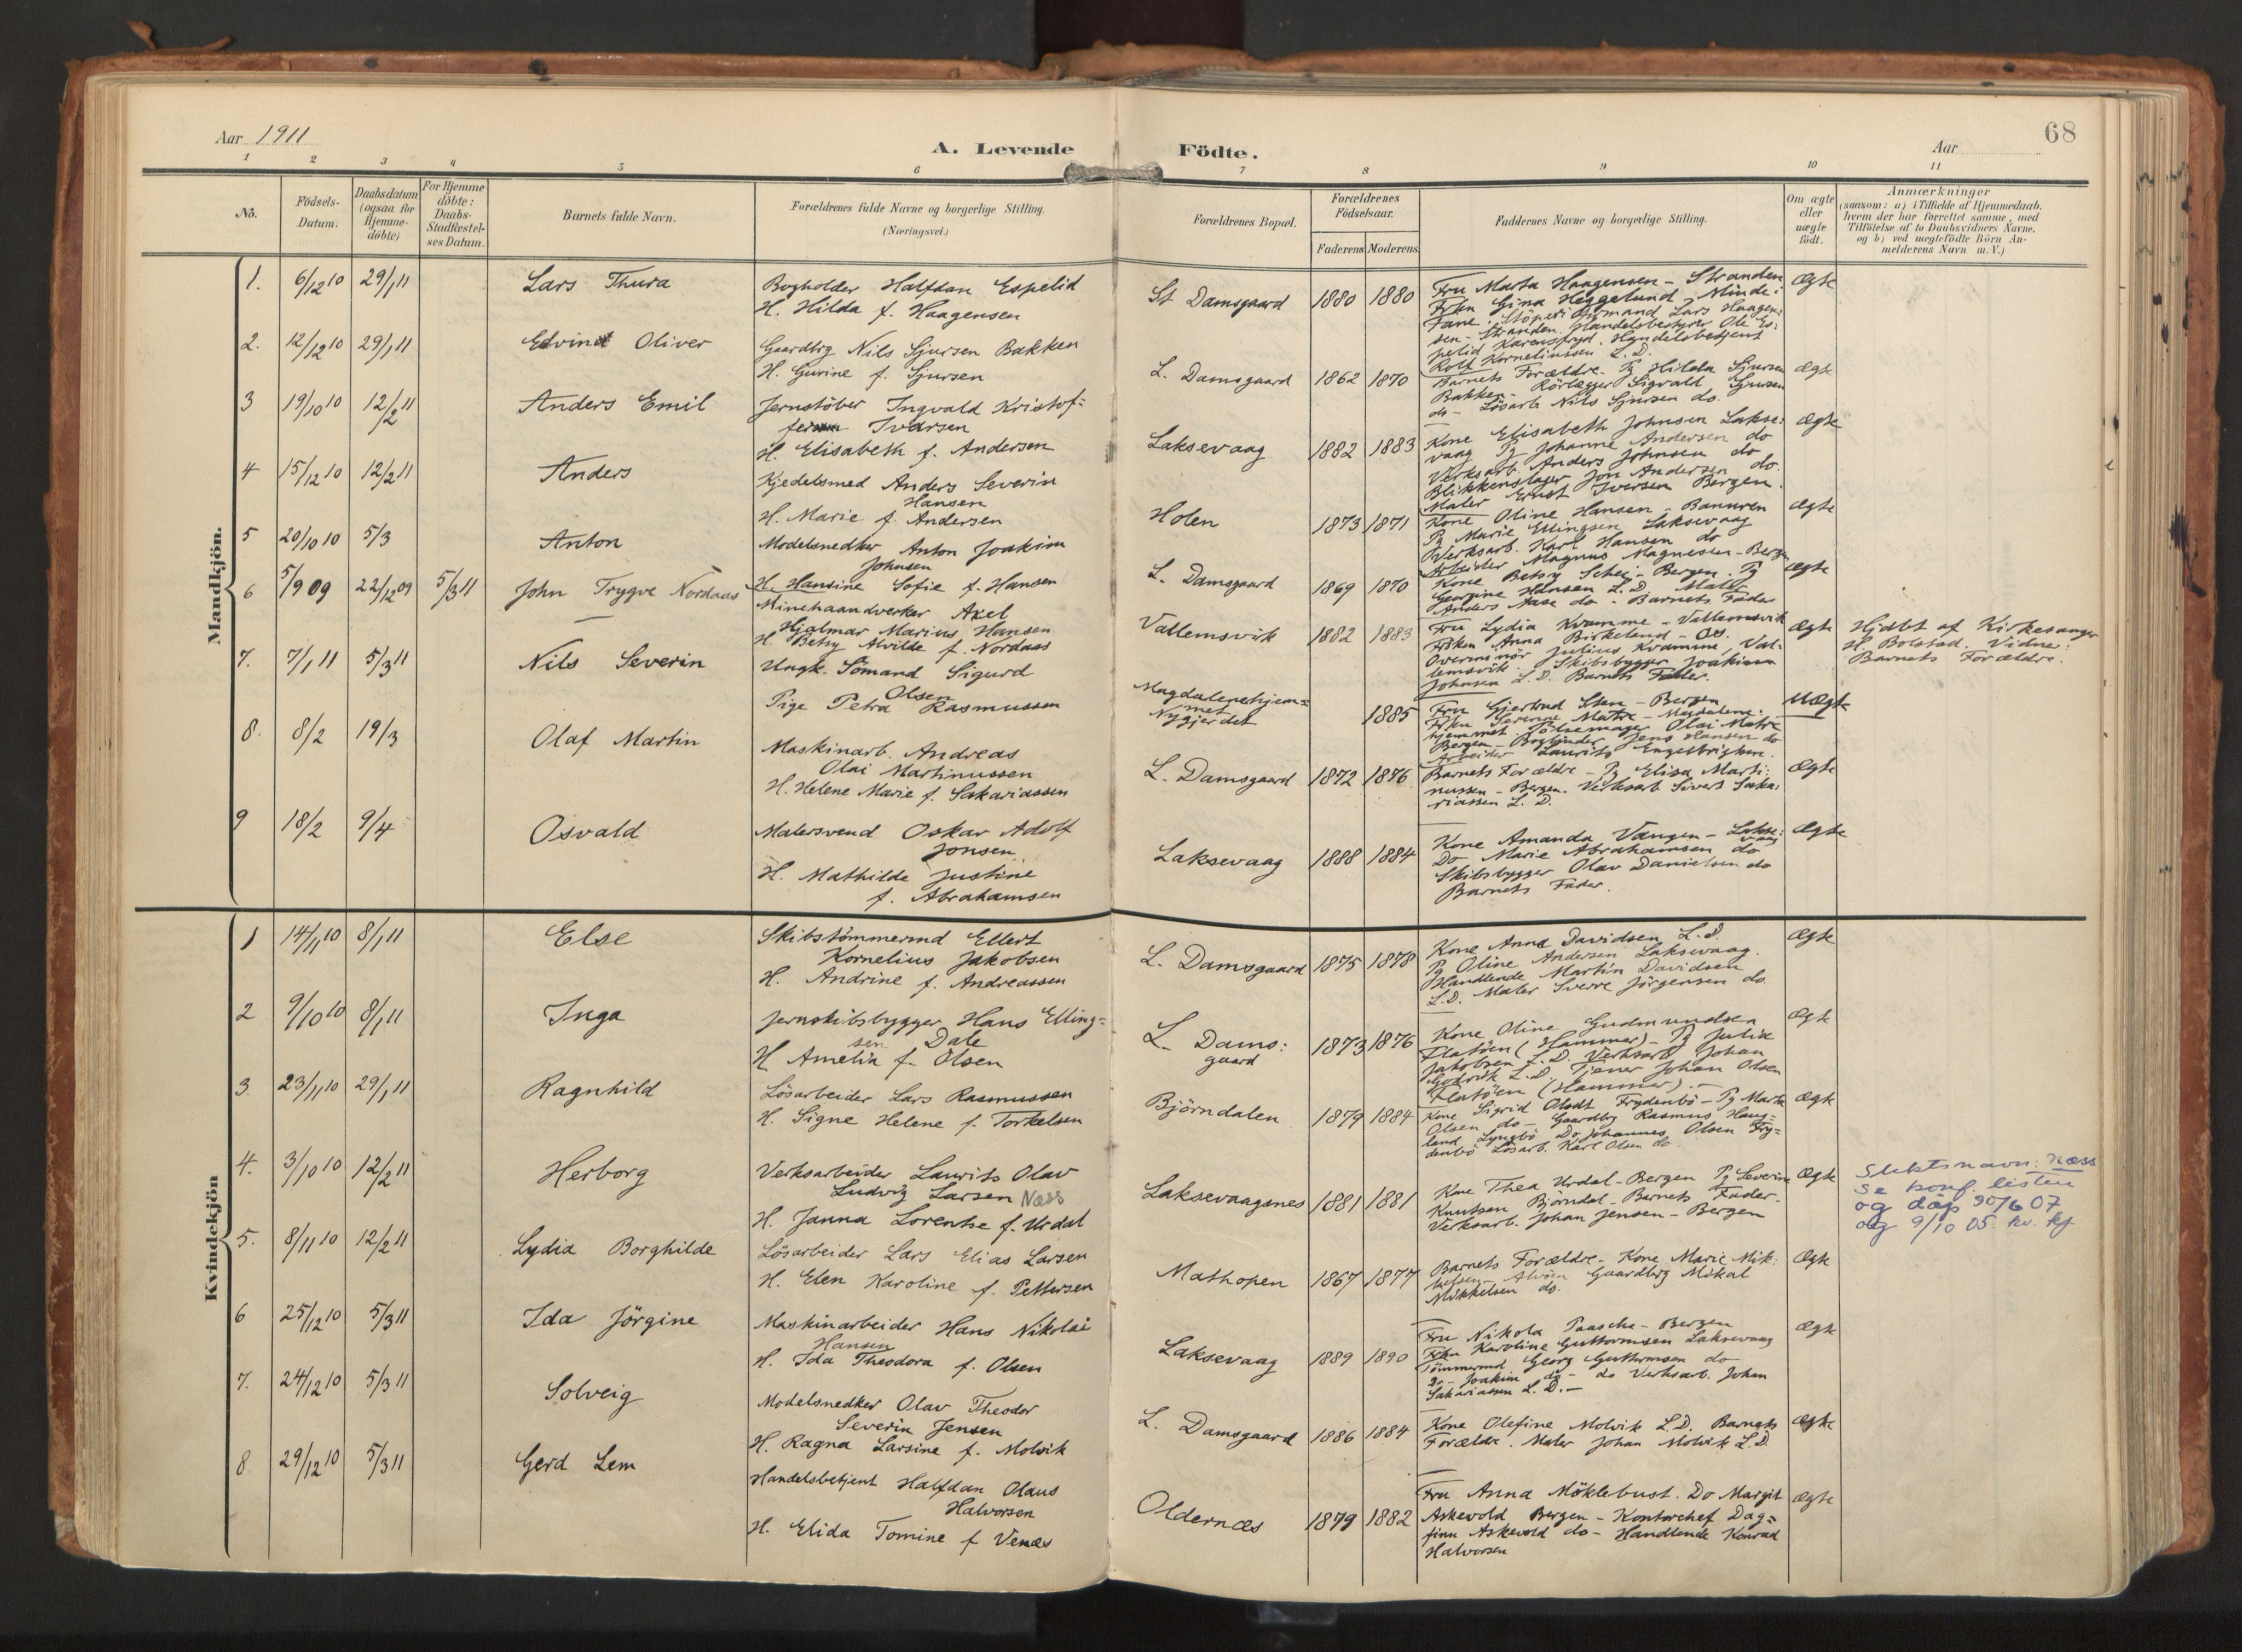 Aar 1911
A. Levende Födte.
Aar
68
1 2 3 4 5 6 7 8 9 10 11
No.
Födsels-Datum.
Daabsdatum (ogsaa for Hjemme-döbte)
For Hjemme döbte: Daabs-Stadfæstel-ses Datum.
Barnets fulde Navn.
Forældrenes fulde Navne og borgerlige Stilling. (Næringsvei.)
Forældrenes Bopæl.
Forældrenes Födselsaar.
Faderens Moderens
Faddernes Navne og borgerlige Stilling.
Om ægte eller uægte födt.
Anmærkninger
(saasom: a) i Tilfælde af Hjemmedaab, hvem der har forrettet samme, med Tilföielse af to Daabsvidners Navne. og b) ved uægtefödte Börn An-melderens Navn m. V.)
Mandkjön.
1. 6/12 10 29/1 11 Lars Thura
Bogholder Halfdan Espelid
H. Hilda f. Haagensen
St Damsgaard 1880 1880
Fru Marta Haagensen - Stranden
Frkn Gina Heggelund, Minde i
Fane. Stöperiformand Lars Haagen:
sen - Stranden. Handelsbestyrer Ole Es:
pelid Karensfryd. Handelsbetjent
Rolf Korneliussen L. D.
Ægte
2. 12/12 10 29/1 11 Edvin Oliver
Gaardbrg Nils Sjursen Bakken
H. Gurine f. Sjursen
L. Damsgaard 1862 1870
Barnets Forældre. Pg Hilda Sjursen
Bakken - Rörlægger Sigvald Sjursen
do - Lösarb Nils Sjursen do.
Ægte
3 19/10 10 12/2 11 Anders Emil
Jernstöber Ingvald Kristof=
fer Ivarsen
H. Elisabeth f. Andersen
Laksevaag 1882 1883
Kone Elisabeth Johnsen Lakse:
vaag Pg Johanne Andersen do
Verksarb. Anders Johnsen do
Blikkenslager Jon Andersen do.
Maler Ernst Iversen Bergen.
Ægte
4 15/12 10 12/2 11 Anders
Kjedelsmed Anders Severin
Hansen
H. Marie f. Andersen
Holen 1873 1871
Kone Oline Hansen - Banuren
Pg Marie Ellingsen Laksevaag
Verksarb. Karl Hansen do
Arbeider Magnus Magnesen - Bergen
Ægte
5 20/10 10 5/3 Anton
Modelsnedker Anton Joakim
Johnsen
H. Hansine Sofie f. Hansen
L. Damsgaard 1869 1870
Kone Betsy Schei - Bergen. Pg
Georgine Hansen L. D. Maler
Anders Aase do - Barnets Fader
Ægte
6 5/9 09 22/12 09 5/3 11 John Trygve Nordaas
Minehaandverker Axel
Hjalmar Marius Hansen
H. Betsy Alvilde f. Nordaas
Vallemsvik 1882 1883
Fru Lydia Kvamme - Vallemsvik
Frken Anna Birkeland - Os.
Overminör Julius Kvamme, Val-
lemsvik. Skibsbygger Joakim
Johnsen L. D. Barnets Fader.
Ægte
Hjdbt af Kirkesanger
H. Bolstad. Vidner:
Barnets Forældre.
7. 7/1 11 5/3 11 Nils Severin
Ungk. Sömand Sigurd
Olsen
Pige Petra Rasmussen
Magdalenehjem=
met
Nygjerdet
1885
Fru Gjertrud Sten - Bergen
Frkn Severine Matre - Magdalene-
hjemmet Pölsemager Olai Matre
Bergen - Bogbinder Jens Hansen do
Arbeider Laurits Engelbrigtsen.
Uægte
8. 8/2 19/3 Olaf Martin
Maskinarb. Andreas
Olai Martinussen
H. Helene Marie f. Sakariassen
L. Damsgaard 1872 1876
Barnets Forældre - Pg Elisa Marti:
nussen - Bergen. Verksarb Sivert Saka:
riassen L. D.
Ægte
9 18/2 9/4 Osvald
Malersvend Oskar Adolf
Jonsen
H. Mathilde Justine
f. Abrahamsen
Laksevaag 1888 1884
Kone Amanda Vangen - Lakse:
vaag
Do Marie Abrahamsen do
Skibsbygger Olav Danielsen do
Barnets Fader.
Ægte
Kvindekjön
1 14/11 10 8/1 11 Else
Skibstömmermd Ellert
Kornelius Jakobsen
H. Andrine f. Andreassen
L. Damsgaard 1875 1878
Kone Anna Davidsen L. D.
Pg Oline Andersen Laksevaag.
Handlende Martin Davidsen
L. D. Maler Sverre Jörgensen do.
Ægte
2 9/10 10 8/1 11 Inga
Jernskibsbygger Hans Elling=
sen Dale
H Amelia f. Olsen
L. Dams:
gaard
1873 1876
Kone Oline Gudmundsen
Flatöen (Hammer) - Pg Julie
Jakobsen L. D. Verksarb. Johan
Godvik L. D. Tjener Johan Olsen
Flatöen (Hammer). -
Ægte
3. 23/11 10 29/1 11 Ragnhild
Lösarbeider Lars Rasmussen
H. Signe Helene f. Torkelsen
Björndalen 1879 1884
Kone Sigrid Olsdt Frydenbö - Pg Marta
Olsen do - Gaardbrg Rasmus Haug=
land Lyngbö Do Johannes Olsen Fry=
denbö Lösarb. Karl Olsen do
Ægte
4. 3/10 10 12/2 11 Herborg
Verksarbeider Laurits Olav
Ludvig Larsen Næss
H. Janna Lorentse f. Urdal
Laksevaagsnes 1881 1881
Kone Thea Urdal - Bergen Pg Severine
Knutsen Björndal - Barnets Fader.
Verksarb. Johan Jensen - Bergen
Ægte
Slektsnavn: Næss
se konf. listen
og dåp 30/6 07
og 9/10 05. kv. kj.
5. 8/11 10 12/2 11 Lydia Borghilde
Lösarbeider Lars Elias Larsen
H. Elen Karoline f. Pettersen
Mathopen 1867 1877
Barnets Forældre - Kone Marie Mik:
kelsen - Alvöen Gaardbrg Mikal
Mikkelsen do.
Ægte
6 25/12 10 5/3 11 Ida Jörgine
Maskinarbeider Hans Nikolai
Hansen
H. Ida Theodora f. Olsen
Laksevaag 1889 1890
Fru Nikola Paasche - Bergen
Frkn Karoline Guttormsen Laksevaag
Tömmermd Georg Guttormsen do
Do - Joakim do - do Verksarb. Johan
Sakariassen L. D. -
Ægte
7. 24/12 10 5/3 11 Solveig
Modelsnedker Olav Theodor
Severin Jensen
H. Ragna Larsine f. Molvik
L. Damsgaard 1886 1884
Kone Olefine Molvik L.D. Barnets
Forældre. Maler Johan Molvik L.D.
Ægte
8. 29/12 10 5/3 11 Gerd Lem
Handelsbetjent Halfdan Olaus
Halvorsen
H. Elida Tomine f Venæs
Oldernæs 1879 1882
Fru Anna Möklebust. Do Margit
Askevold Bergen - Kontorchef Dag=
finn Askevold do - Handlende Konrad
Halvorsen
Ægte